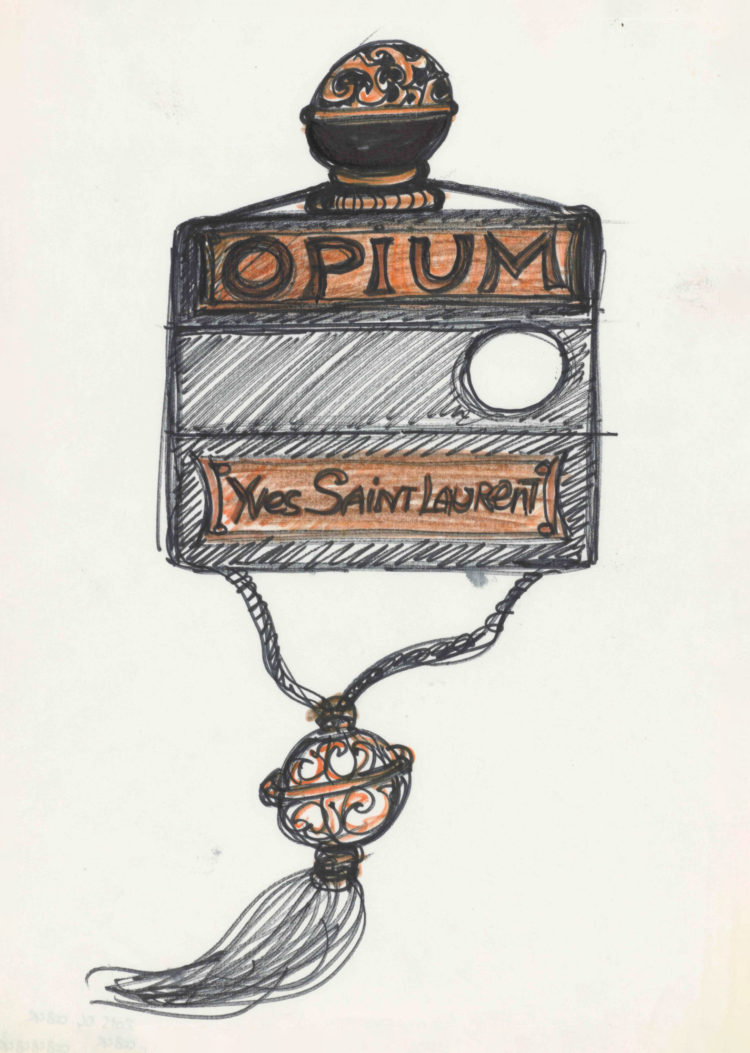 OPIUM
Yves SAINT LAURENT